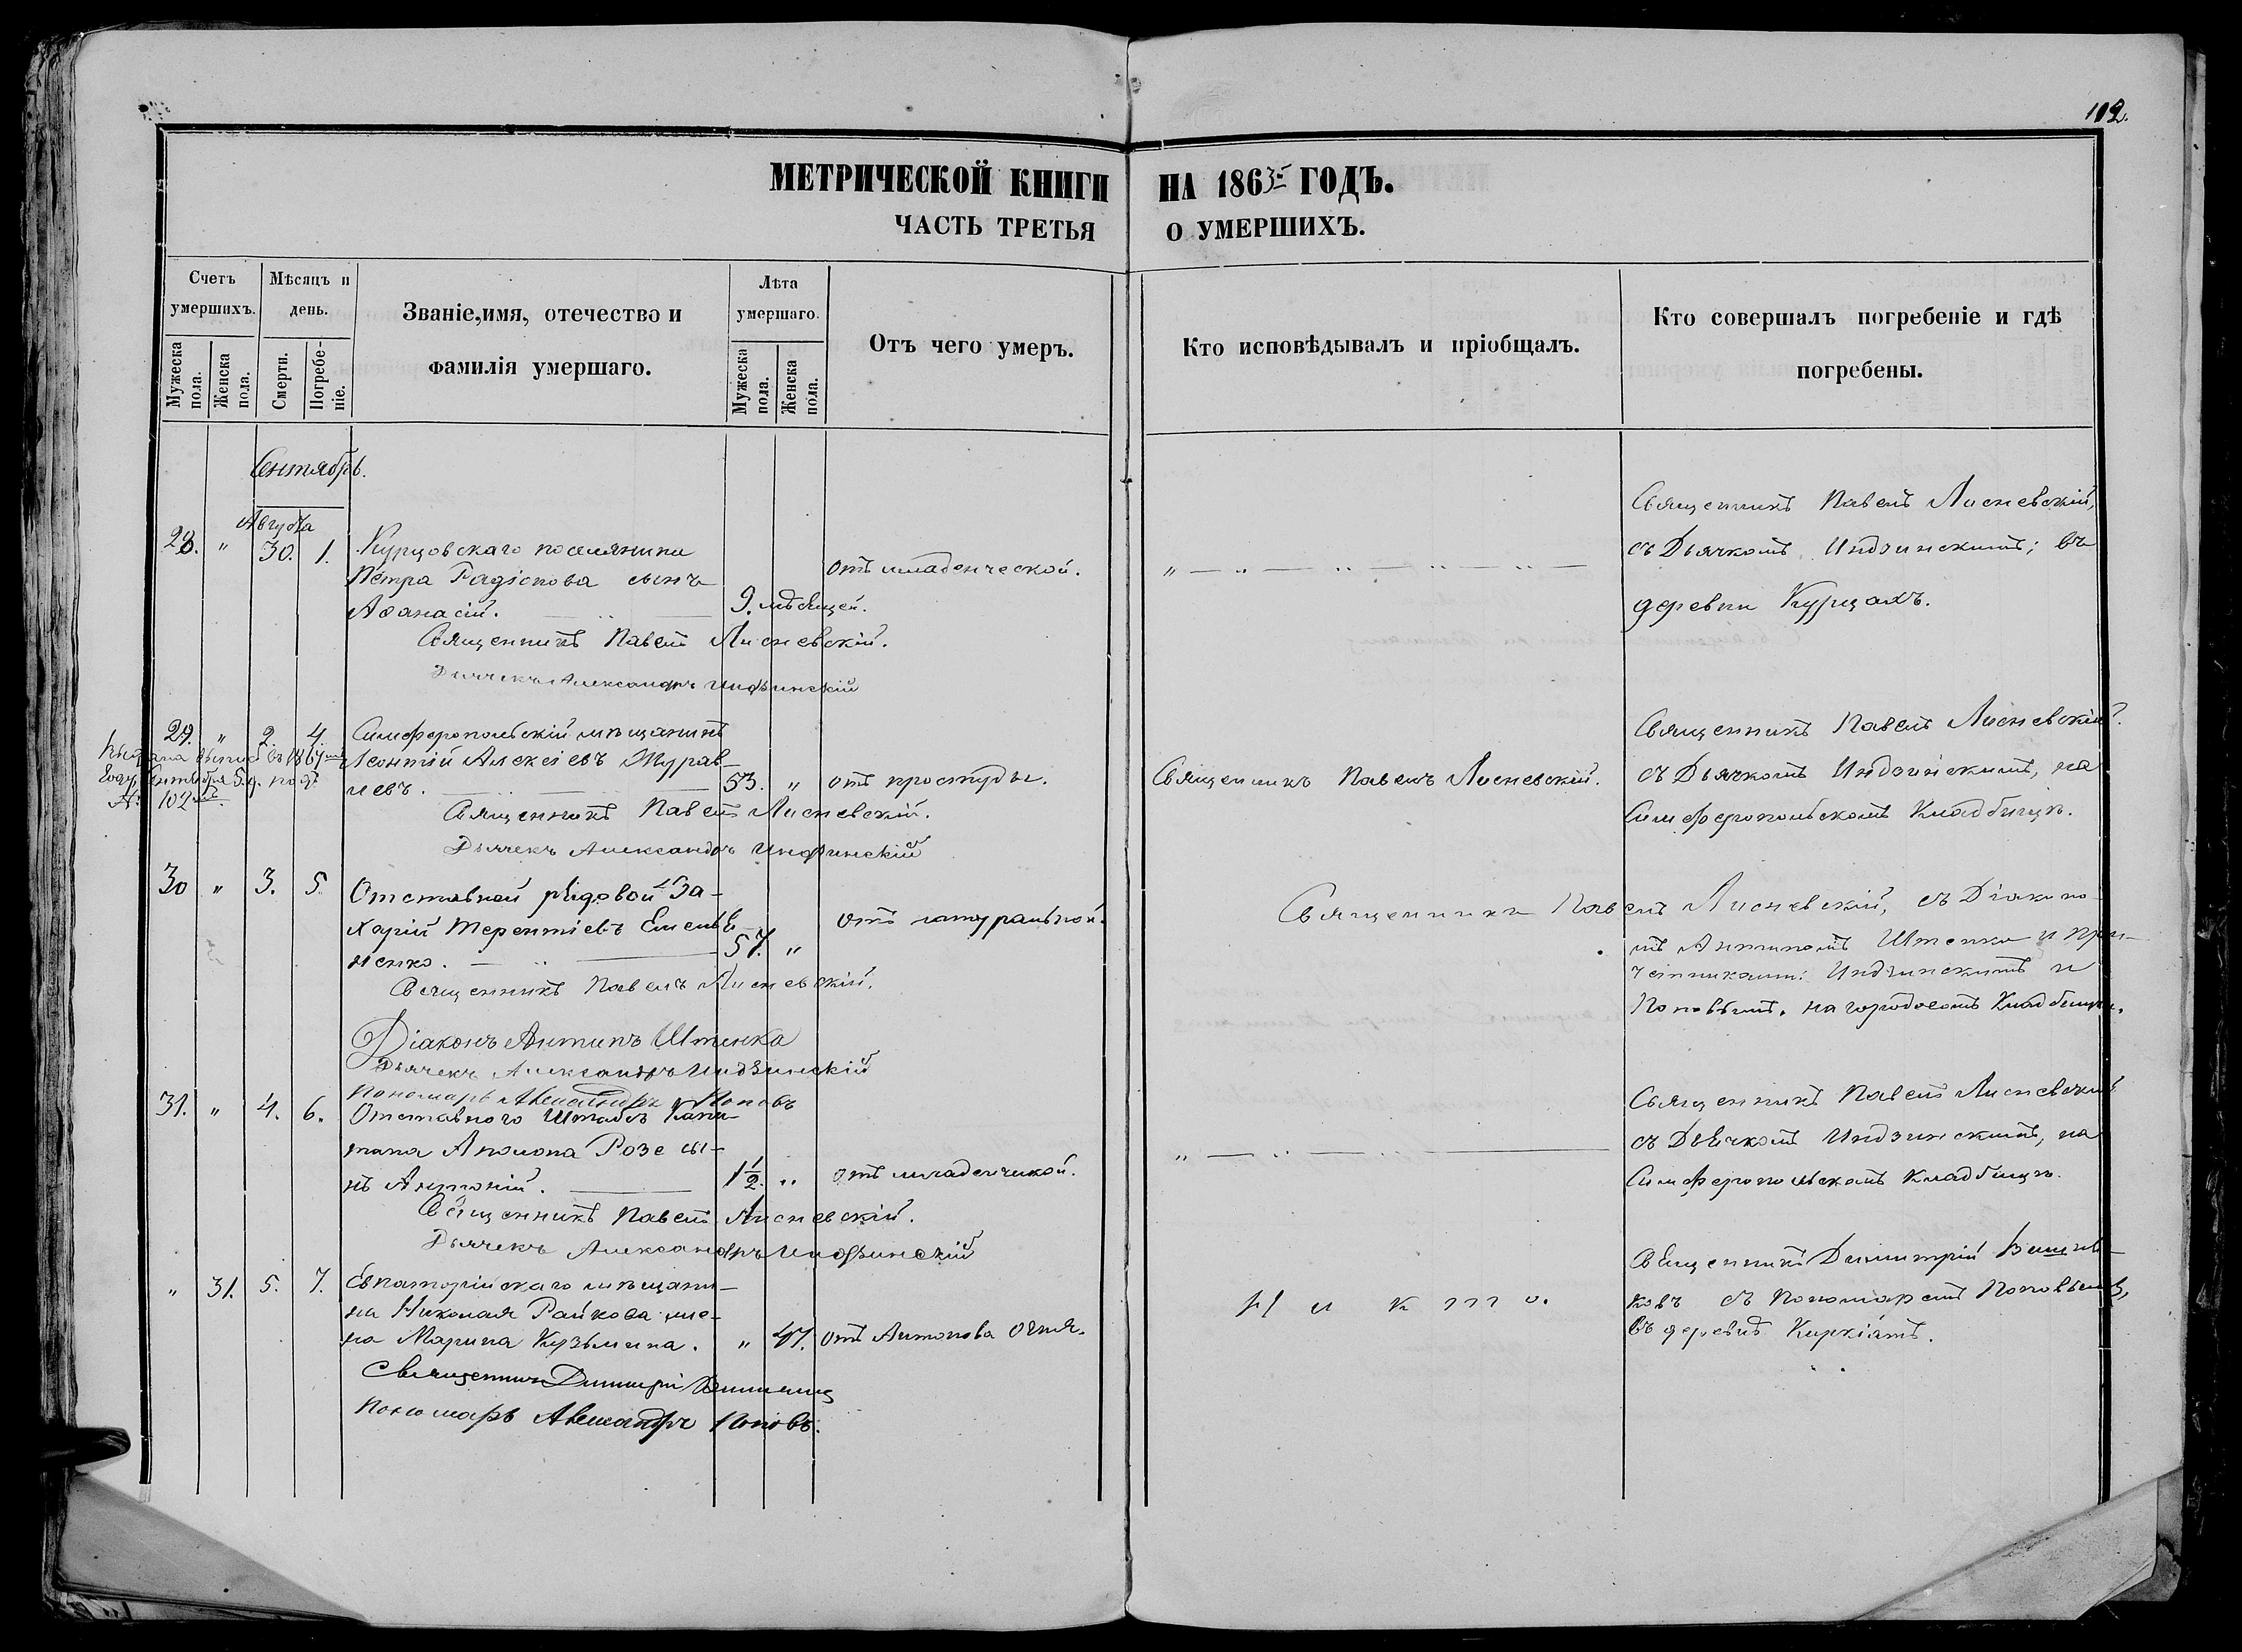 112.
МЕТРИЧЕСКОЙ КНИГИ НА 1863 ГОДЪ.
ЧАСТЬ ТРЕТЬЯ О УМЕРШИХЪ.
Счетъ умершихъ.
Мужеска пола.
Женска пола.
Мѣсяцъ и день.
Смерти.
Погребе-ніе.
Званіе, имя, отечество и
фамилія умершаго.
Лѣта умершаго.
Мужеска пола.
Женска пола.
Отъ чего умеръ.
Кто исповѣдывалъ и пріобщалъ.
Кто совершалъ погребеніе и гдѣ
погребены.
Сентябрь.
Августа
28. " 30. 1. Курцовскаго поселянина
Петра Радіонова сынъ
Аѳанасій. 9. мѣсяцей. отъ младенческой.
Священникъ Павелъ Лисневскій,
съ Дьячкомъ Индзинскимъ; въ
деревни Курцахъ.
Священникъ Павелъ Лисневскій.
Дьячекъ Александръ Индзинскій
29. " 2. 4. Симферопольскій мѣщанинъ
Леонтій Алексіевъ Журав-
левъ. 53. " отъ простуды.
102
Священникъ Павелъ Лисневскій.
Священникъ Павелъ Лисневскій.
съ Дьячкомъ Индзинскимъ, на
Симферопольскомъ Кладбищѣ.
Священникъ Павелъ Лисневскій.
Дьячекъ Александръ Индзинскій
30 " 3. 5. Отставной рядовой За-
харій Терентіевъ Емелья-
ненко. 57. " отъ натуральной.
Священникъ Павелъ Лисневскій, съ Діаконо-
мъ Антипомъ Штенко и при-
четниками: Индзинскимъ и
Поповымъ, на городскомъ Кладбищѣ.
Священникъ Павелъ Лисневскій.
Діаконъ Антипъ Штенко
Дьячекъ Александръ Индзинскій
Пономарь Александръ Поповъ
31. " 4. 6. Отставного Штабсъ Капи-
тана Аполона Розе сы-
нъ Антоній. 1½. " отъ младенчикой.
Священникъ Павелъ Лисневскій
съ Дьячкомъ Индзинскимъ, на
Симферопольскомъ Кладбищѣ.
Священникъ Павелъ Лисневскій.
Дьячекъ Александръ Индзинскій
" 31. 5. 7. Евпаторійскаго мѣщани-
на Николая Райкова же-
на Марина Кузьмина. " 47. отъ Антонова Огня.
Никто.
Священникъ Димитрій
ковъ съ Пономаремъ Поповымъ,
въ деревнѣ Киркіятъ.
Священникъ Димитрій
Пономарь Александръ Поповъ.